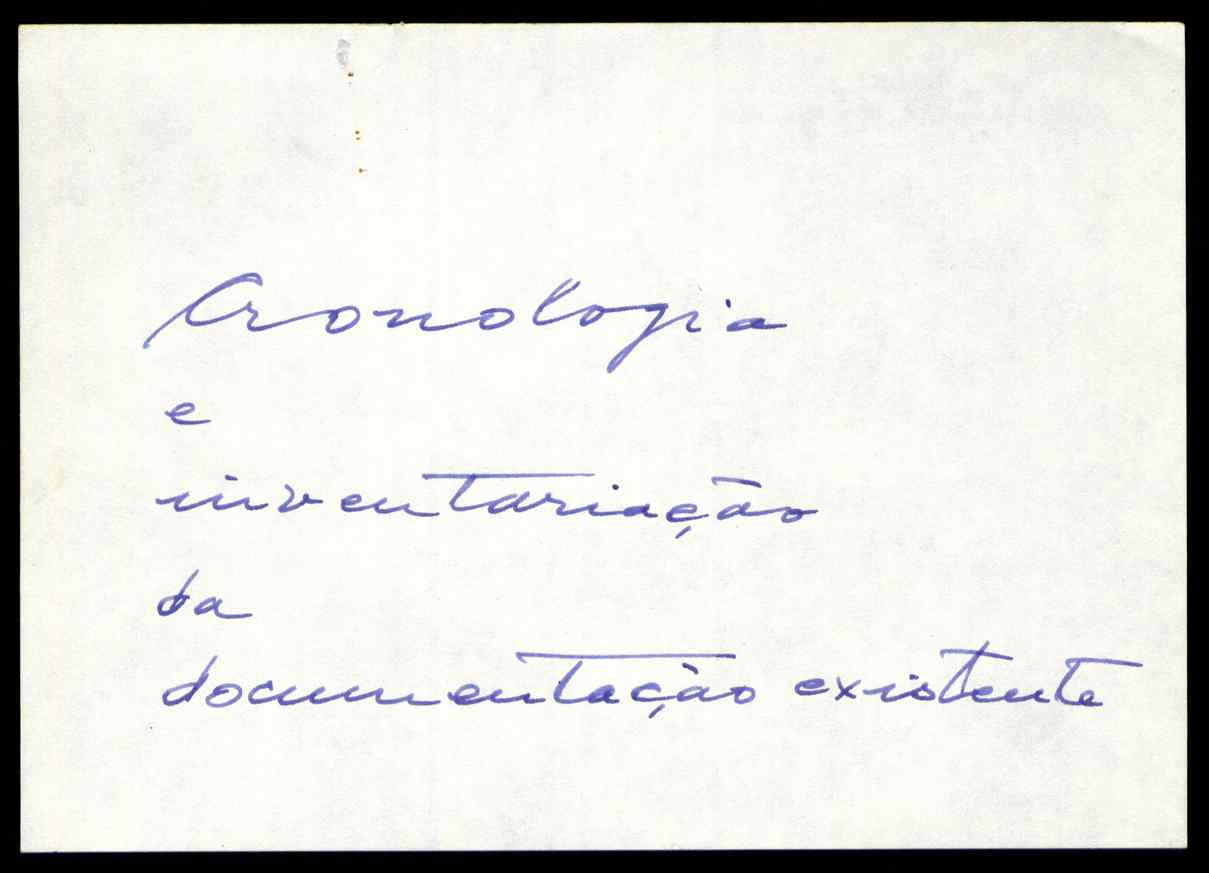 Cronologia
e
inventariação
da
documentação existente